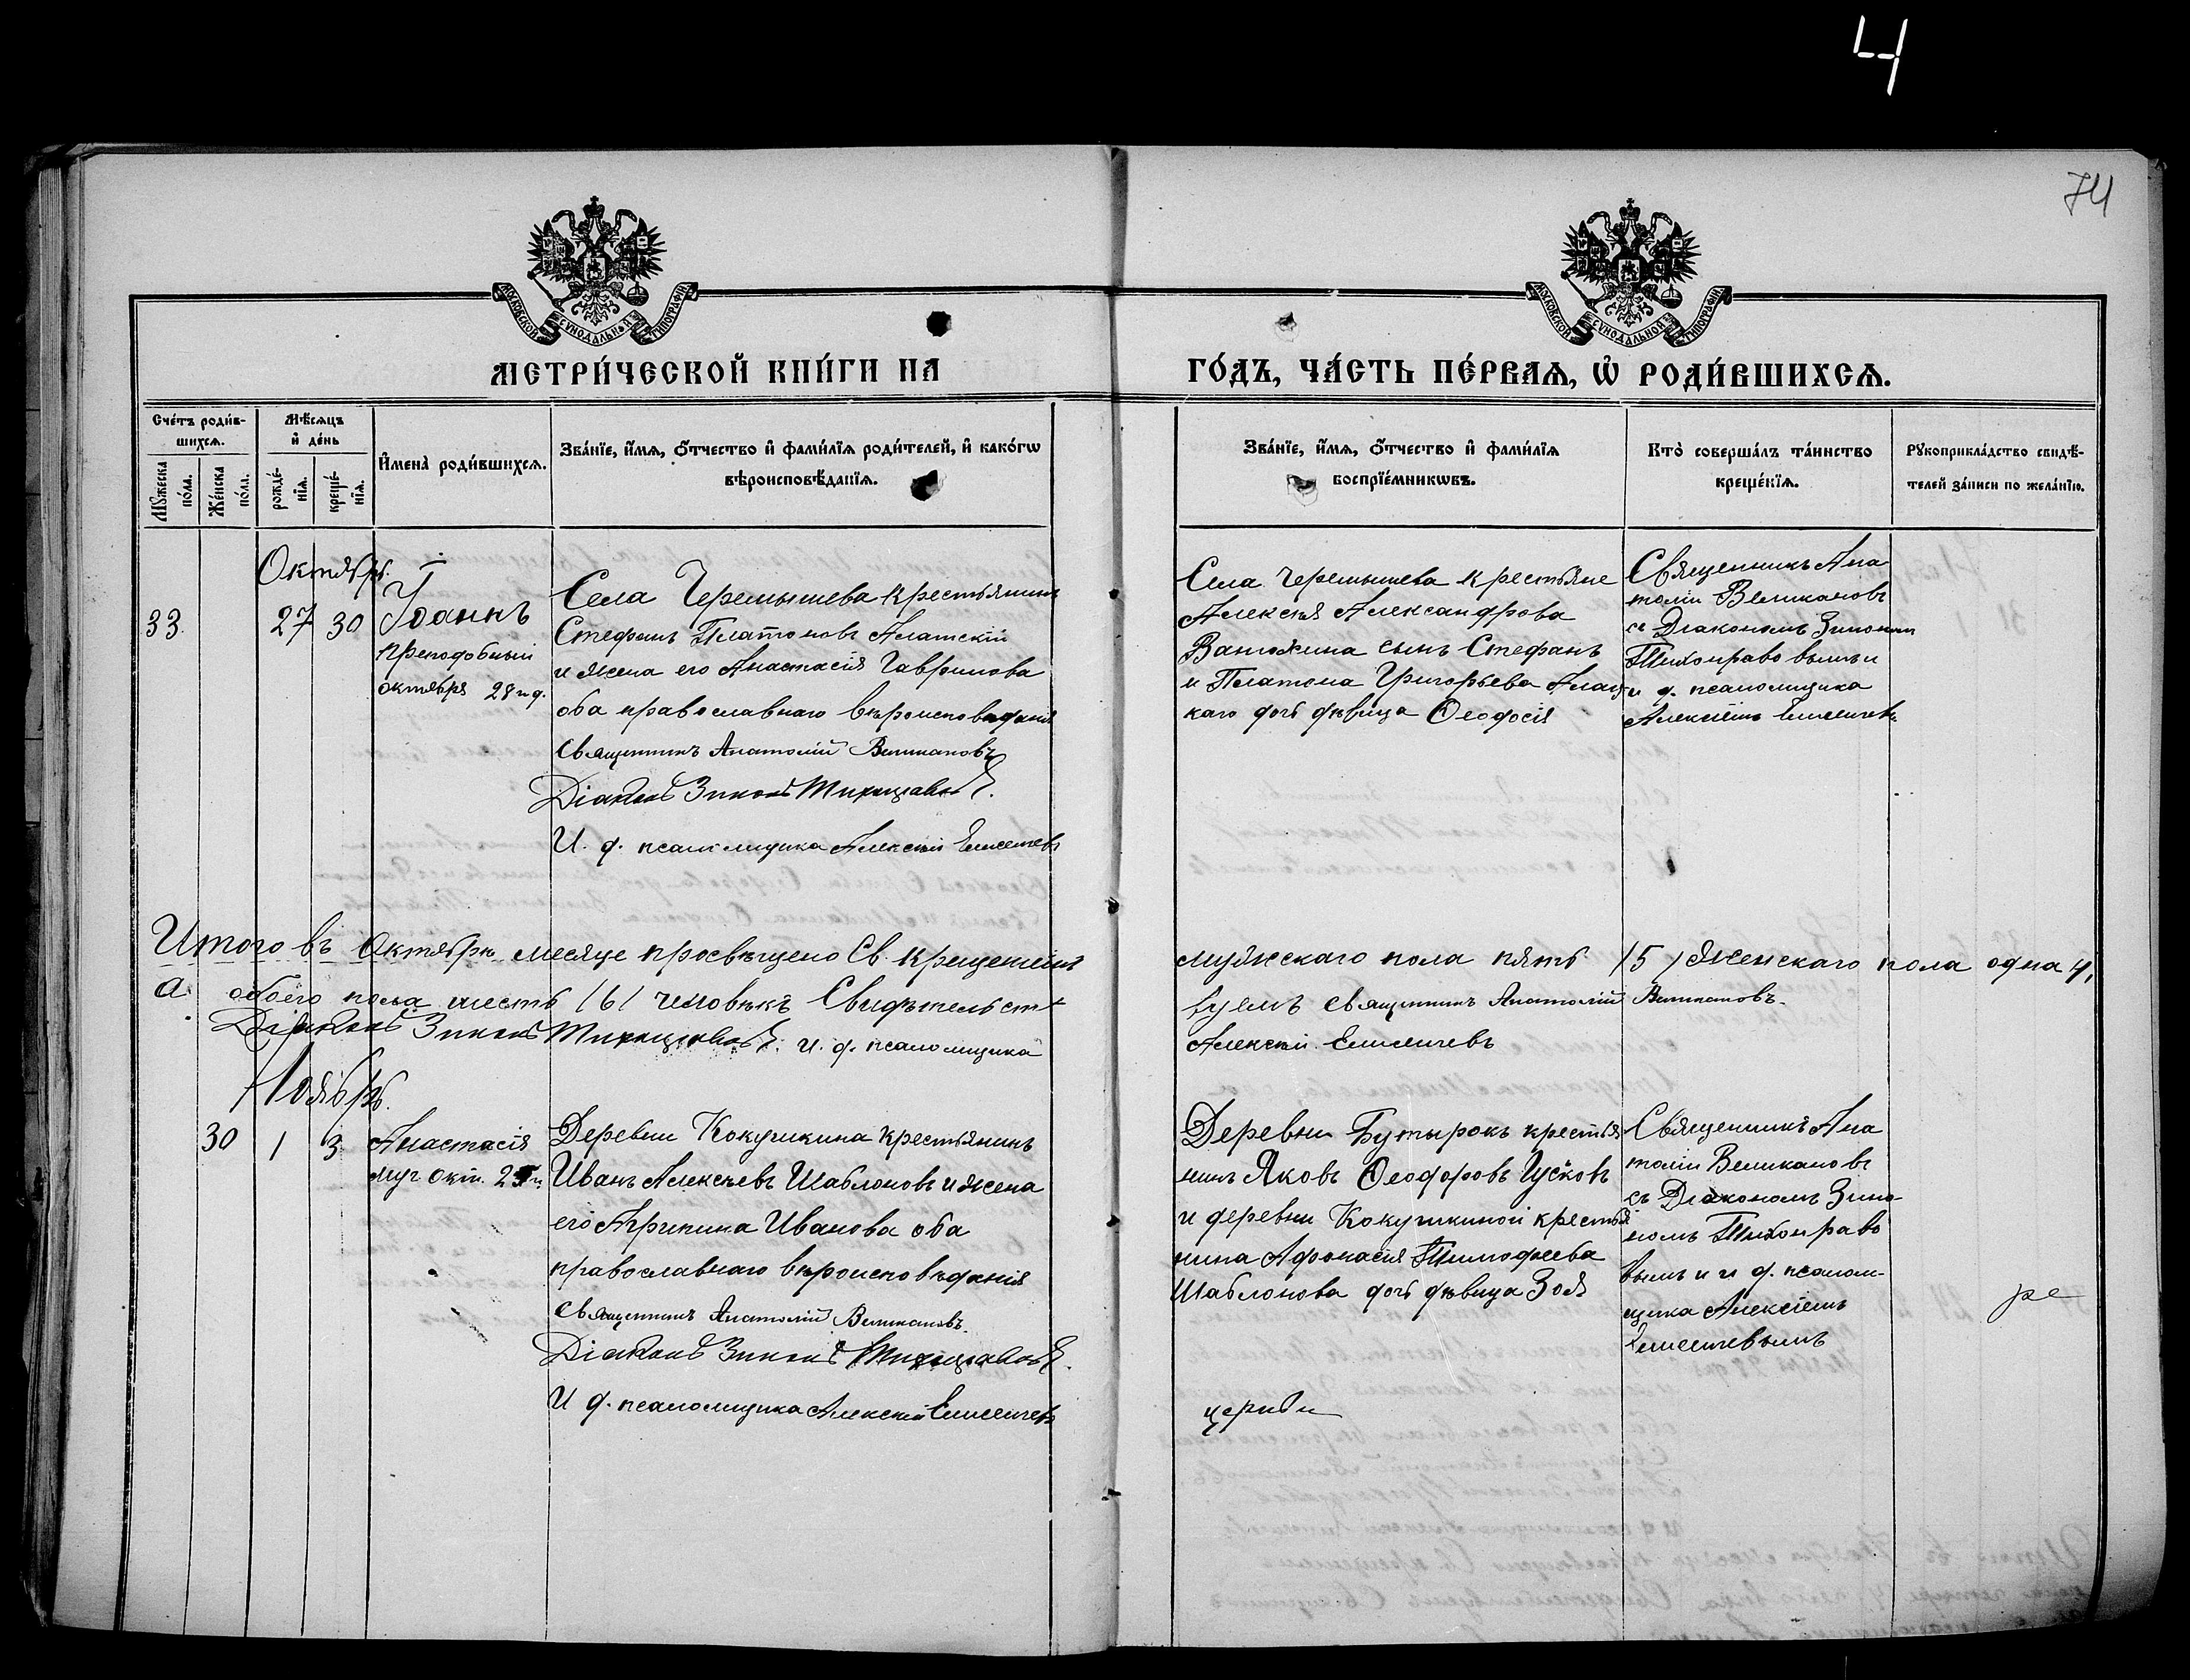 4
74
МОСКОВСКОЙ СѴНОДАЛЬНОЙ ТИПОГРАФІИ
МОСКОВСКОЙ СѴНОДАЛЬНОЙ ТИПОГРАФІИ
МЕТРИ́ЧЕСКОЙ КНИ́ГИ НА
ГО́ДЪ, ЧА́СТЬ ПЕ́РВАѦ, Ѡ҆ РОДИ́ВШИХСѦ.
Сче́тъ роди́в-
шихсѧ.
Мꙋ́жеска по́ла.
Же́нска по́ла.
Мѣ́сѧцъ
и҆ де́нь
рожде́-
нїѧ.
креще́-
нїѧ.
И҆мена̀ роди́вшихсѧ.
Зва́нїе, и҆́мѧ, ѻ҆́тчество и҆ фами́лїѧ роди́телей, и҆ како́гѡ
вѣроисповѣ́данїѧ.
Зва́нїе, и҆́мѧ, ѻ҆́тчество и҆ фами́лїѧ
воспрїе́мникѡвъ.
Кто̀ соверша́лъ та́инство
креще́нїѧ.
Рꙋкоприкла́дство свидѣ́-
телей за́писи по жела́нїю.
Октябрь.
33.
27
30
Іоаннъ
преподобный
октября 28 п д.
Села Черемышева крестьянинъ
Стефанъ Платоновъ Алатскій
и жена его Анастасія Гаврилова
оба православнаго вѣроисповѣданія
Священникъ Анатолій Великановъ
Діаконъ Зинонъ Тихонравовъ.
И. д. псаломщика Алексѣй Елисеичевъ
Села Черемышева крестьяне
Алексѣя Александрова
сынъ Стефанъ
и Платона Григорьева
каго дочь дѣвица Ѳеодосія
Священникъ Ана
толій Великановъ
съ Діакономъ Зинономъ
Тихонравовымъ и
и д. псаломщика
Алексѣемъ Елисеичев
Итого въ Октябрѣ месяце просвѣщено Св. крещеніемъ
мужскаго пола пять /5/ женскаго пола одна 1,
а обоего пола шесть /6/ человѣкъ Свидѣтельст
вуемъ Священникъ Анатолій Великановъ.
Діаконъ Зинонъ Тихонравовъ. и. д. псаломщика
Алексѣй Елисеичевъ
Ноябрь.
30
1
3
Анастасія
муч. окт. 29 п.
Деревни Кокушкина крестьянинъ
Иванъ Алексѣевъ Шаблоновъ и жена
его Агрипина Иванова оба
православнаго вѣроисповѣданія
Священникъ Анатолій Великановъ.
Діаконъ Зинонъ Тихонравовъ.
И д. псаломщика Алексѣй Елисеичевъ
Деревни Бутырокъ крестья
нинъ Яковъ Ѳеодоровъ Гусковъ
и деревни Кокушкиной крестья
нина Афонасія Тимофѣева
Шаблонова дочь дѣвица Зоя
Священникъ Ана
толій Великановъ
съ Діакономъ Зино
номъ Тихонраво
вымъ и и д. псалом-
щика Алексѣемъ
Елисеичевымъ
ре
церкви